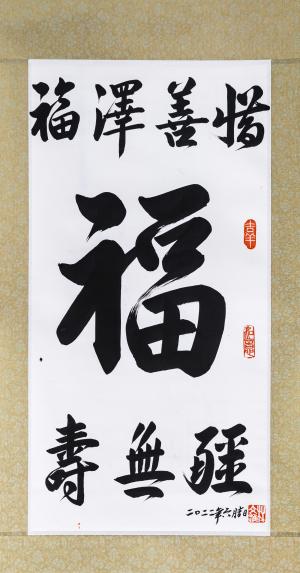 福澤善惜
福
吉羊
壽無疆
二〇二二年六月吉日